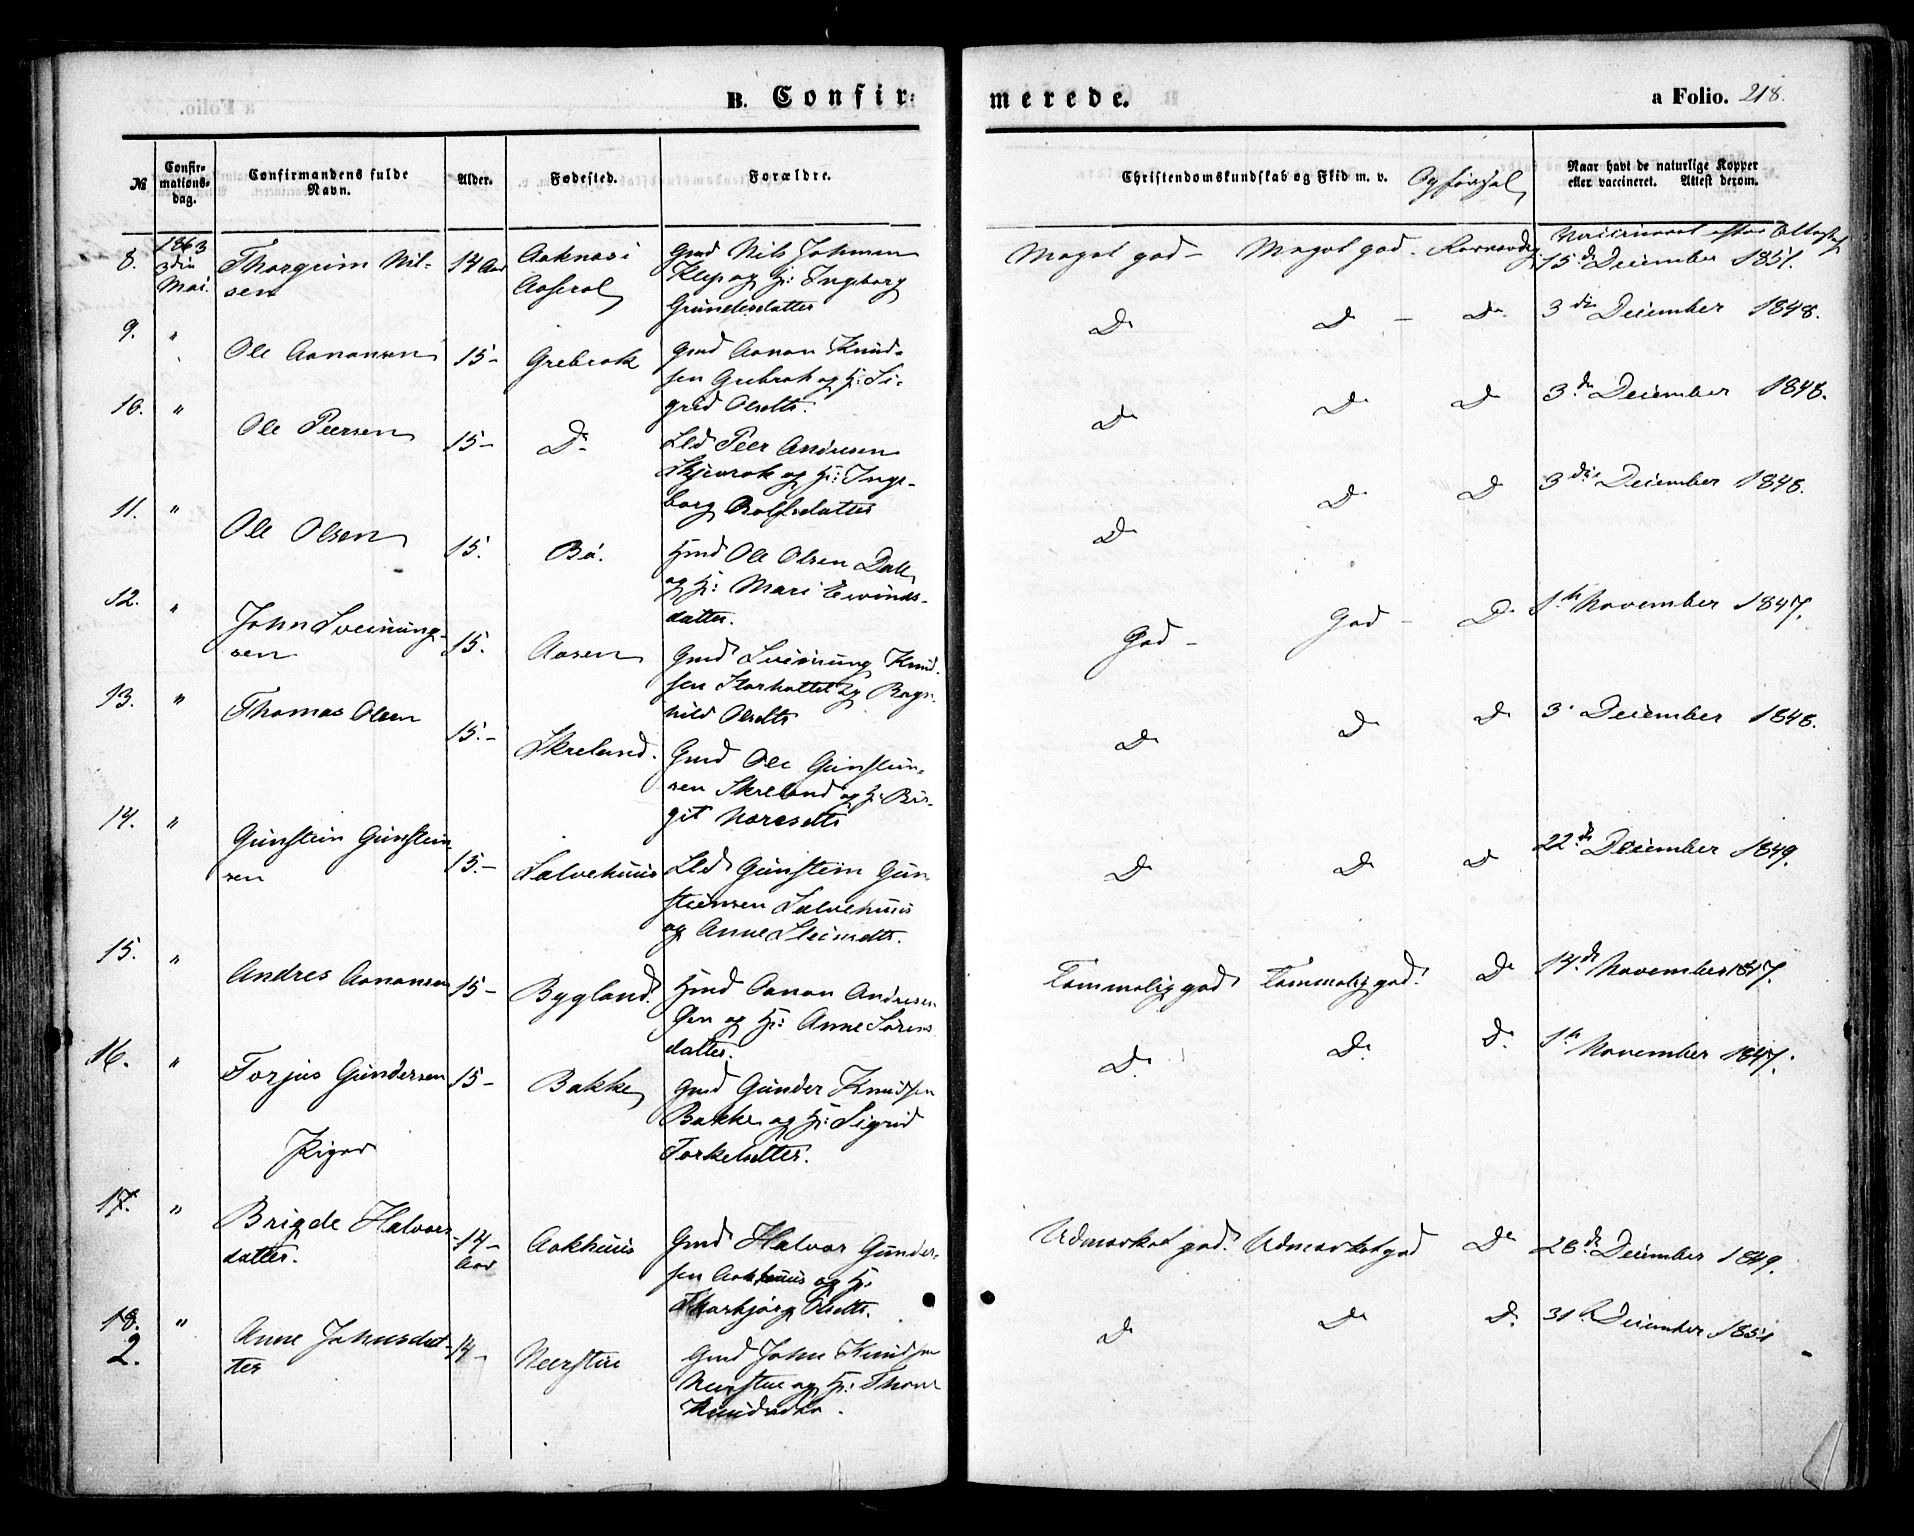 B. Confir: merede. a Folio. 218.
№ Confir-mations-dag. Confirmandens fulde Navn. Alder. Fødested. Forældre. Christendomskundskab og Flid m. v. Opførsel Naar havt de naturlige Kopper eller vaccineret. Attest derom.
8. 1863 3die Mai. Thorgrim Nil-
sen 14 Aar Aaknæs i
Aaseral Gmd Nils Johnsen
Klep og H: Ingeborg
Gundersdatter Meget god - Meget god - Vaccineret efter Attest
15de December 1851.
9. " Ole Aanonsen 15- Grebrok Gmd Aanon Knud-
sen Grebrok og H: Si-
grid Olsdtr. Do Do - Do 3die December 1848.
10. " Ole Peersen 15- Do Lld Peer Andresen
Skjevrak og H: Inge-
borg Rolfsdatter Do Do Do 3die December 1848.
11. " Ole Olsen 15. Bø. Hmd Ole Olsen Dale
og H: Mari Eivinds-
datter. Do Do Do 3die December 1848.
12. " John Sveinung-
sen 15. Aasen Gmd Sveinung Knud-
sen og Ragn-
hild Olsdtr God - God - Do 1ste November 1847.
13. " Thomas Olsen 15.- Skreland. Gmd Ole Gunstein-
sen Skreland og H: Bir-
git Do Do Do 3. December 1848.
14. " Gunstein Gunstein-
sen 15.- Salvehuus Lld Gunstein Gun-
steinsen Salvehuus
og Anne Do Do Do 22de December 1849.
15. " Andres Aanonsen 15- Bygland. Hmd Aanon Andresen
og H: Anne Sørens
datter. Temmelig god Temmelig god. Do 14de November 1847.
16. " Torjus Gundersen 15- Bakke Gmd Gunder Knudsen
Bakke og H: Sigrid
Torkelsdtter. Do Do Do. 1ste November 1847.
Piger
17. " Brigde Halvors-
datter. 14- Aar Aakhuus Gmd Halvor Gunder-
sen Aakhuus og H:
Thorbjørg Olsdtr. Udmærket god. Udmærket god Do 28de December 1849.
18. " Anne Johnsdat-
ter 14- Neerstue Gmd John Knudsen
Neerstue og H: Thone
Knudsdtr. Do Do Do. 31te December 1851
2.